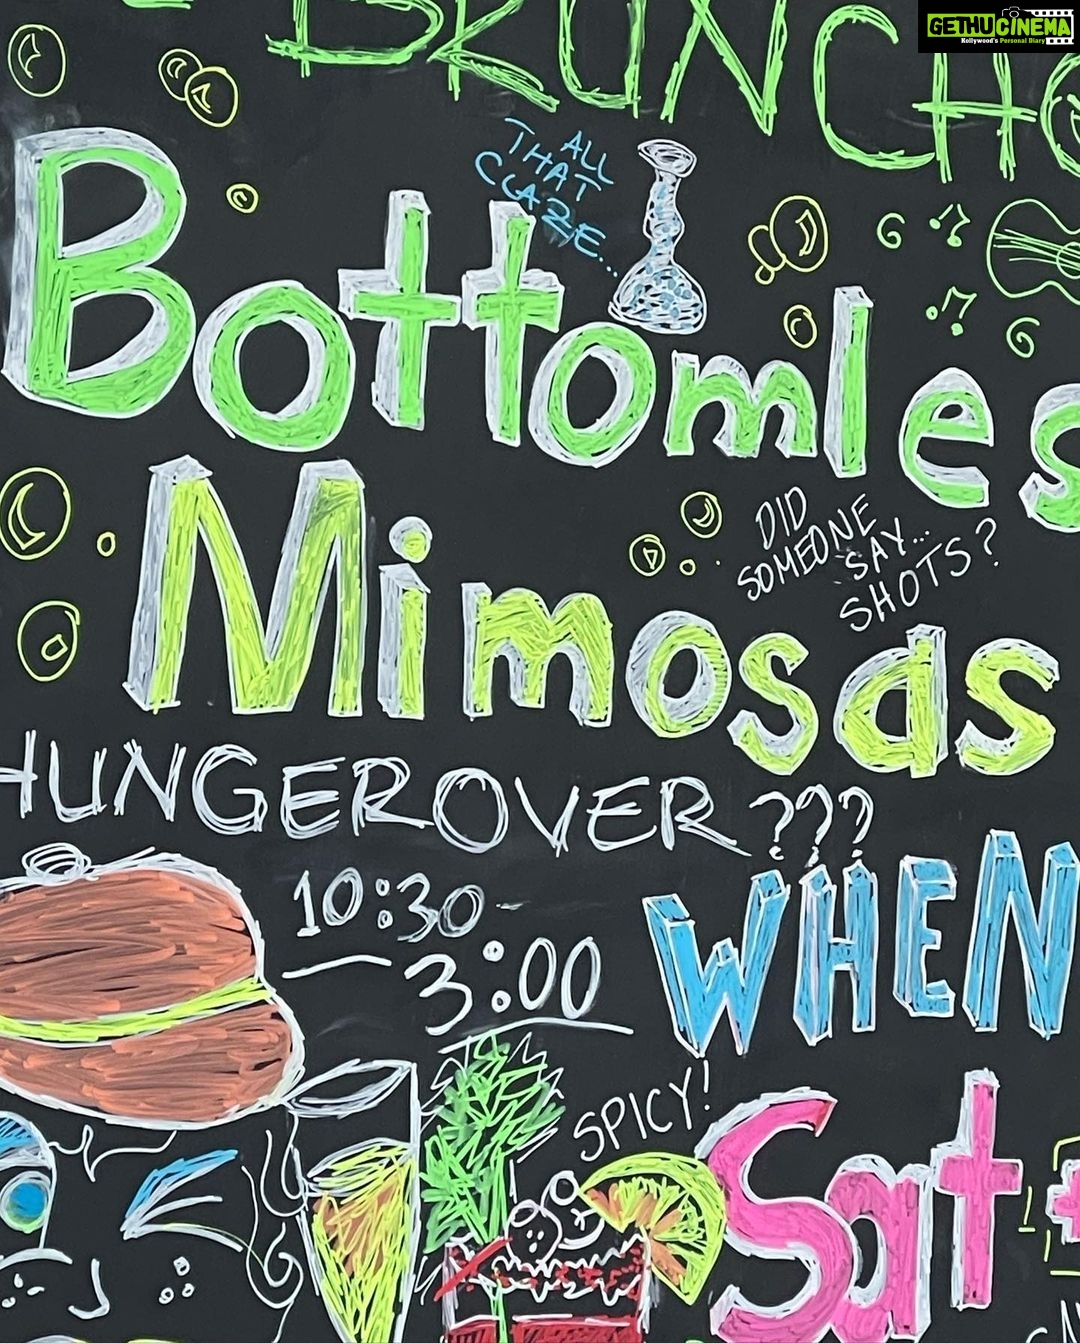 GETHUCINEMA
Kollywood's Personal Diary
BRUNCH
ALL
THAT
CLAZE...
Bottomles
DID
SOMEONE
SAY...
SHOTS?
Mimosas
HUNGEROVER???
10:30 -
3:00
WHEN
SPICY!
Sat